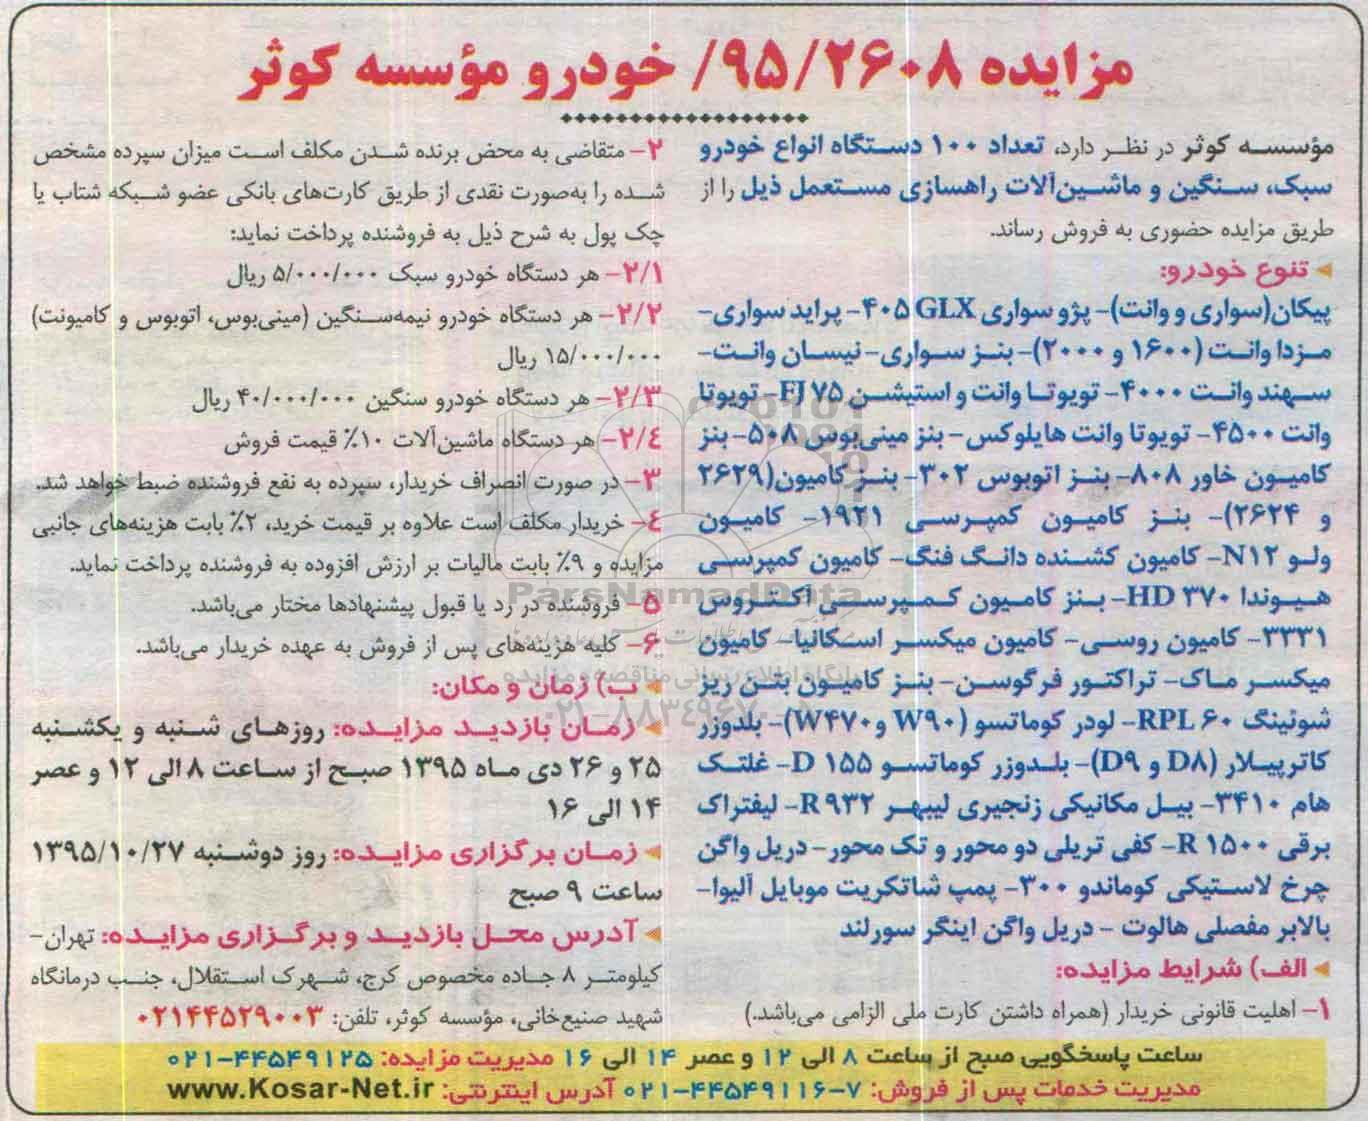 مزایده ۹۵/۲۶۰۸/ خودرو مؤسسه کوثر
مؤسسه کوثر در نظر دارد، تعداد ۱۰۰ دستگاه انواع خودرو
سبک، سنگین و ماشین‌آلات راهسازی مستعمل ذیل را از
طریق مزایده حضوری به فروش رساند.
تنوع خودرو:
پیکان(سواری و وانت)- پژو سواری ۴۰۵ GLX- پراید سواری-
مزدا وانت (۱۶۰۰ و ۲۰۰۰)- بنز سواری- نیسان وانت-
سهند وانت ۴۰۰۰- تویوتا وانت و استیشن FJ ۷۵- تویوتا
وانت ۴۵۰۰- تویوتا وانت هایلوکس- بنز مینی‌بوس ۵۰۸- بنز
کامیون خاور ۸۰۸- بنز اتوبوس ۳۰۲- بنز کامیون(۲۶۲۹
و ۲۶۲۴)- بنز کامیون کمپرسی ۱۹۲۱- کامیون
ولو N۱۲- کامیون کشنده دانگ فنگ- کامیون کمپرسی
هیوندا HD ۳۷۰- بنز کامیون کمپرسی آکتروس
۳۳۳۱- کامیون روسی- کامیون میکسر اسکانیا- کامیون
میکسر ماک- تراکتور فرگوسن- بنز کامیون بتن ریز
شوئینگ RPL ۶۰- لودر کوماتسو (W۹۰ وW۴۷۰)- بلدوزر
کاترپیلار (D۸ و D۹)- بلدوزر کوماتسو D ۱۵۵- غلتک
هام ۳۴۱۰- بیل مکانیکی زنجیری لیبهر R ۹۳۲- لیفتراک
برقی R ۱۵۰۰- کفی تریلی دو محور و تک محور- دریل واگن
چرخ لاستیکی کوماندو ۳۰۰- پمپ شاتکریت موبایل آلیوا-
بالابر مفصلی هالوت - دریل واگن اینگر سورلند
الف) شرایط مزایده:
۱- اهلیت قانونی خریدار (همراه داشتن کارت ملی الزامی می‌باشد.)
۲- متقاضی به محض برنده شدن مکلف است میزان سپرده مشخص
شده را به‌صورت نقدی از طریق کارت‌های بانکی عضو شبکه شتاب یا
چک پول به شرح ذیل به فروشنده پرداخت نماید:
۲/۱- هر دستگاه خودرو سبک ۵/۰۰۰/۰۰۰ ریال
۲/۲- هر دستگاه خودرو نیمه‌سنگین (مینی‌بوس، اتوبوس و کامیونت)
۱۵/۰۰۰/۰۰۰ ریال
۲/۳- هر دستگاه خودرو سنگین ۴۰/۰۰۰/۰۰۰ ریال
۲/٤- هر دستگاه ماشین‌آلات ۱۰٪ قیمت فروش
۳- در صورت انصراف خریدار، سپرده به نفع فروشنده ضبط خواهد شد.
٤- خریدار مکلف است علاوه بر قیمت خرید، ۲٪ بابت هزینه‌های جانبی
مزایده و ۹٪ بابت مالیات بر ارزش افزوده به فروشنده پرداخت نماید.
۵- فروشنده در رد یا قبول پیشنهادها مختار می‌باشد.
۶- کلیه هزینه‌های پس از فروش به عهده خریدار می‌باشد.
ب) زمان و مکان:
زمان بازدید مزایده: روزهای شنبه و یکشنبه
۲۵ و ۲۶ دی ماه ۱۳۹۵ صبح از ساعت ۸ الی ۱۲ و عصر
۱۴ الی ۱۶
زمان برگزاری مزایده: روز دوشنبه ۱۳۹۵/۱۰/۲۷
ساعت ۹ صبح
آدرس محل بازدید و برگزاری مزایده: تهران-
کیلومتر ۸ جاده مخصوص کرج، شهرک استقلال، جنب درمانگاه
شهید صنیع‌خانی، مؤسسه کوثر، تلفن: ۰۲۱۴۴۵۲۹۰۰۳
ساعت پاسخگویی صبح از ساعت ۸ الی ۱۲ و عصر ۱۴ الی ۱۶ مدیریت مزایده: ۰۲۱-۴۴۵۴۹۱۲۵
مدیریت خدمات پس از فروش: ۰۲۱-۴۴۵۴۹۱۱۶-۷ آدرس اینترنتی: www.Kosar-Net.ir
ParsNamadData
پایگاه اطلاع رسانی مناقصه و مزایده